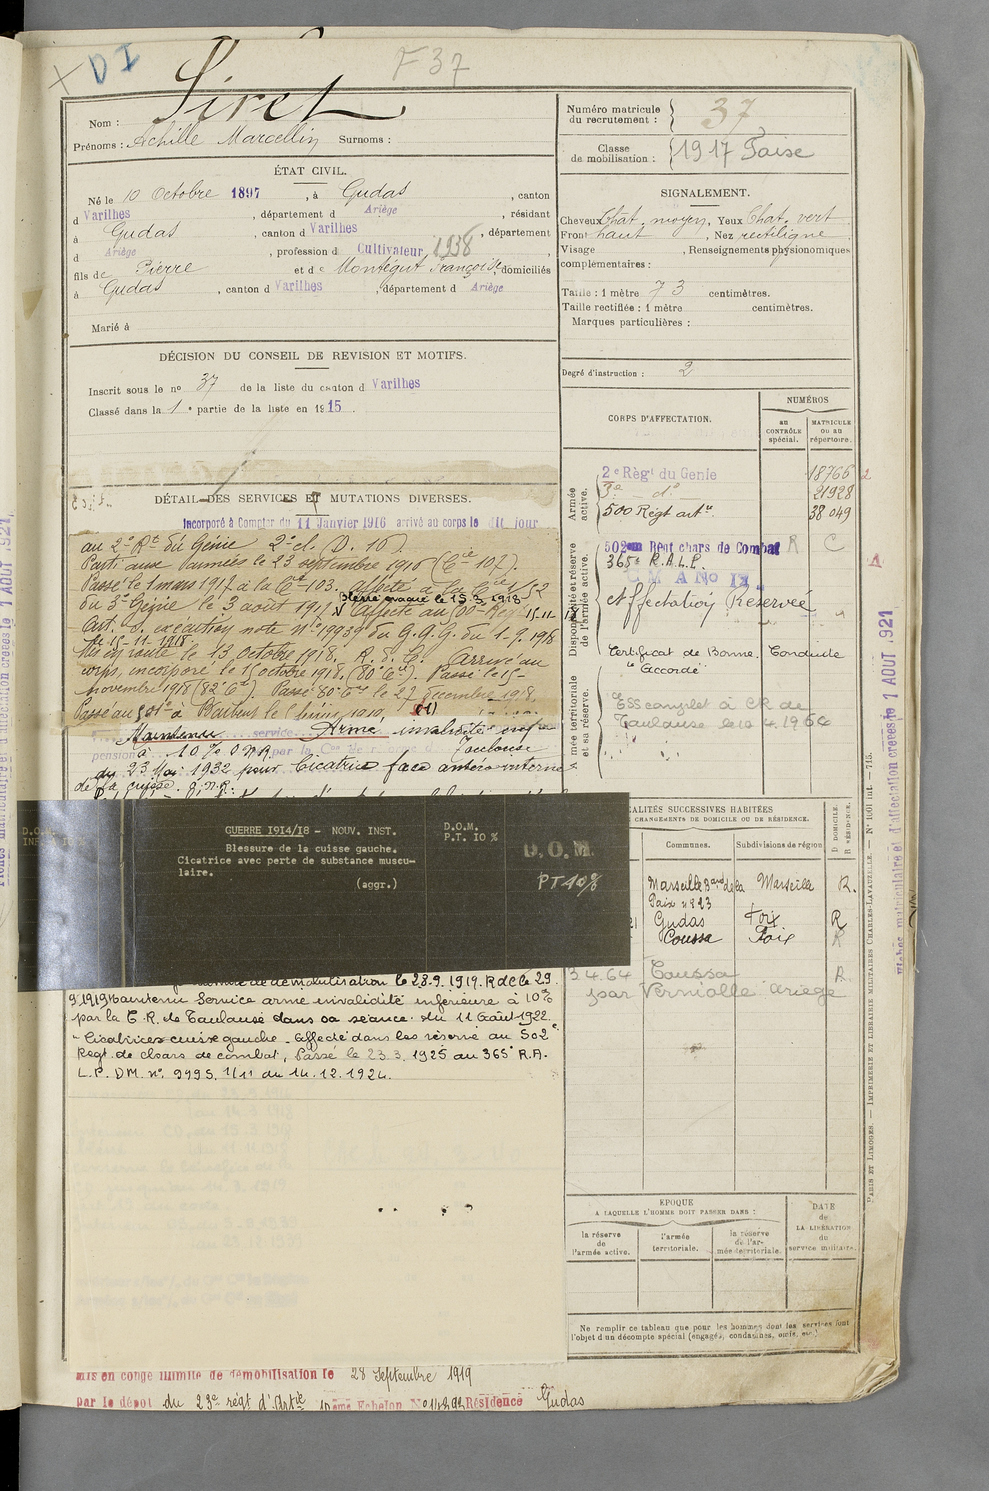 X DI F 37
Siret
Nom :
Prénoms : Achille Marcellin Surnoms :
Numéro matricule du recrutement : 37
Classe de mobilisation : 1917 Foix
ÉTAT CIVIL.
Né le 10 Octobre 1897, à Gudas, canton
d Varilhes, département d Ariège, résidant
à Gudas, canton d Varilhes, département
d Ariège, profession d Cultivateur 1938,
fils de Pierre et de Montégut Françoise, domiciliés
à Gudas, canton d Varilhes, département d Ariège
Marié à
SIGNALEMENT.
Cheveux Chat. moyen, Yeux Chat. vert
Front haut, Nez rectiligne
Visage , Renseignements physionomiques
complémentaires :
Taille : 1 mètre 73 centimètres.
Taille rectifiée : 1 mètre centimètres.
Marques particulières :
Degré d'instruction : 2
DÉCISION DU CONSEIL DE REVISION ET MOTIFS.
Inscrit sous le no 37 de la liste du canton d Varilhes
Classé dans la 1e partie de la liste en 1915.
DÉTAIL DES SERVICES ET MUTATIONS DIVERSES.
Incorporé à Compter du 11 Janvier 1916 arrivé au corps le dit jour
au 2e Rt du Génie 2e cl. (D. 16).
Parti aux Armées le 23 septembre 1916 (Cie 107).
Passé le 1 mars 1917 à la Cie 103. Affecté à la Cie 4/52
Blessé évacué le 15.3.1918
du 3e Génie le 3 août 1917. Affecté au 500e Reg
15-11-18
Art. d. exécution note No 19939 du G.Q.G. du 1-9-1918
le 15-11-1918.
Mis en route le 13 octobre 1918. R. d. C. Arrivé au
corps, incorporé le 15 octobre 1918. (80e Cie). Passé le 15-
novembre 1918 (82e Cie). Passé 80e Cie le 27 décembre 1918.
Passé au 501e à le 1919. (1)
Maintenu service Armé invalidité
pension à 10% O.N.R. par la Con de réforme de Toulouse
du 23 Mai 1932 pour Cicatrice face antéro interne
de la cuisse. g.
GUERRE 1914/18 - NOUV. INST.
Blessure de la cuisse gauche.
Cicatrice avec perte de substance muscu-
laire.
(aggr.)
D.O.M.
P.T. 10 %
D.O.M.
PT 10%
de démobilisation le 28.9.1919. R de C le 29.
9.1919 Maintenu Service armé invalidité inférieure à 10%
par la C.R. de Toulouse dans sa séance du 11 Août 1922.
"Cicatrices cuisse gauche. Affecté dans les réserve au 502e
Régt. de chars de combat, Passé le 23.3.1925 au 365e R.A.
L.P. DM. no. 9995. 1/11 du 14.12.1924.
mis en congé illimité de démobilisation le 28 Septembre 1919
par le dépôt du 23e régt d'Artie 10ème Echelon No 14892 Résidence Gudas
CORPS D'AFFECTATION.
NUMÉROS
au CONTRÔLE spécial.
MATRICULE ou au répertoire.
Armée active.
2e Régt du Génie 18766
3e do 21928
500 Régt artie 38 049
Disponibilité et réserve de l'armée active.
502e Régt chars de Combat R C
365e R.A.L.P.
Affectation Réservée
Certificat de Bonne Conduite
"Accordé"
Armée territoriale et sa réserve.
ESS complet à CR de
Toulouse le 10 4.1964
LOCALITÉS SUCCESSIVES HABITÉES
CHANGEMENTS DE DOMICILE OU DE RÉSIDENCE.
Communes.
Subdivisions de région
D DOMICILE. R RÉSIDENCE.
Marseille 3 and de la Marseille R.
Paix no 23
Gudas Foix R
Coussa Foix R
3 4.64 Coussa R.
par Verniolle Ariège
EPOQUE
A LAQUELLE L'HOMME DOIT PASSER DANS :
la réserve de l'armée active.
l'armée territoriale.
la réserve de l'armée territoriale.
DATE de LA LIBÉRATION du service militaire.
Ne remplir ce tableau que pour les hommes dont les services font
l'objet d'un décompte spécial (engagés, condamnés, omis, etc.)
PARIS ET LIMOGES. — IMPRIMERIE ET LIBRAIRIE MILITAIRES CHARLES-LAVAUZELLE. — No 1001 int. — 715.
Fiches matriculaire et d'affectation créées le 1 AOUT 1921